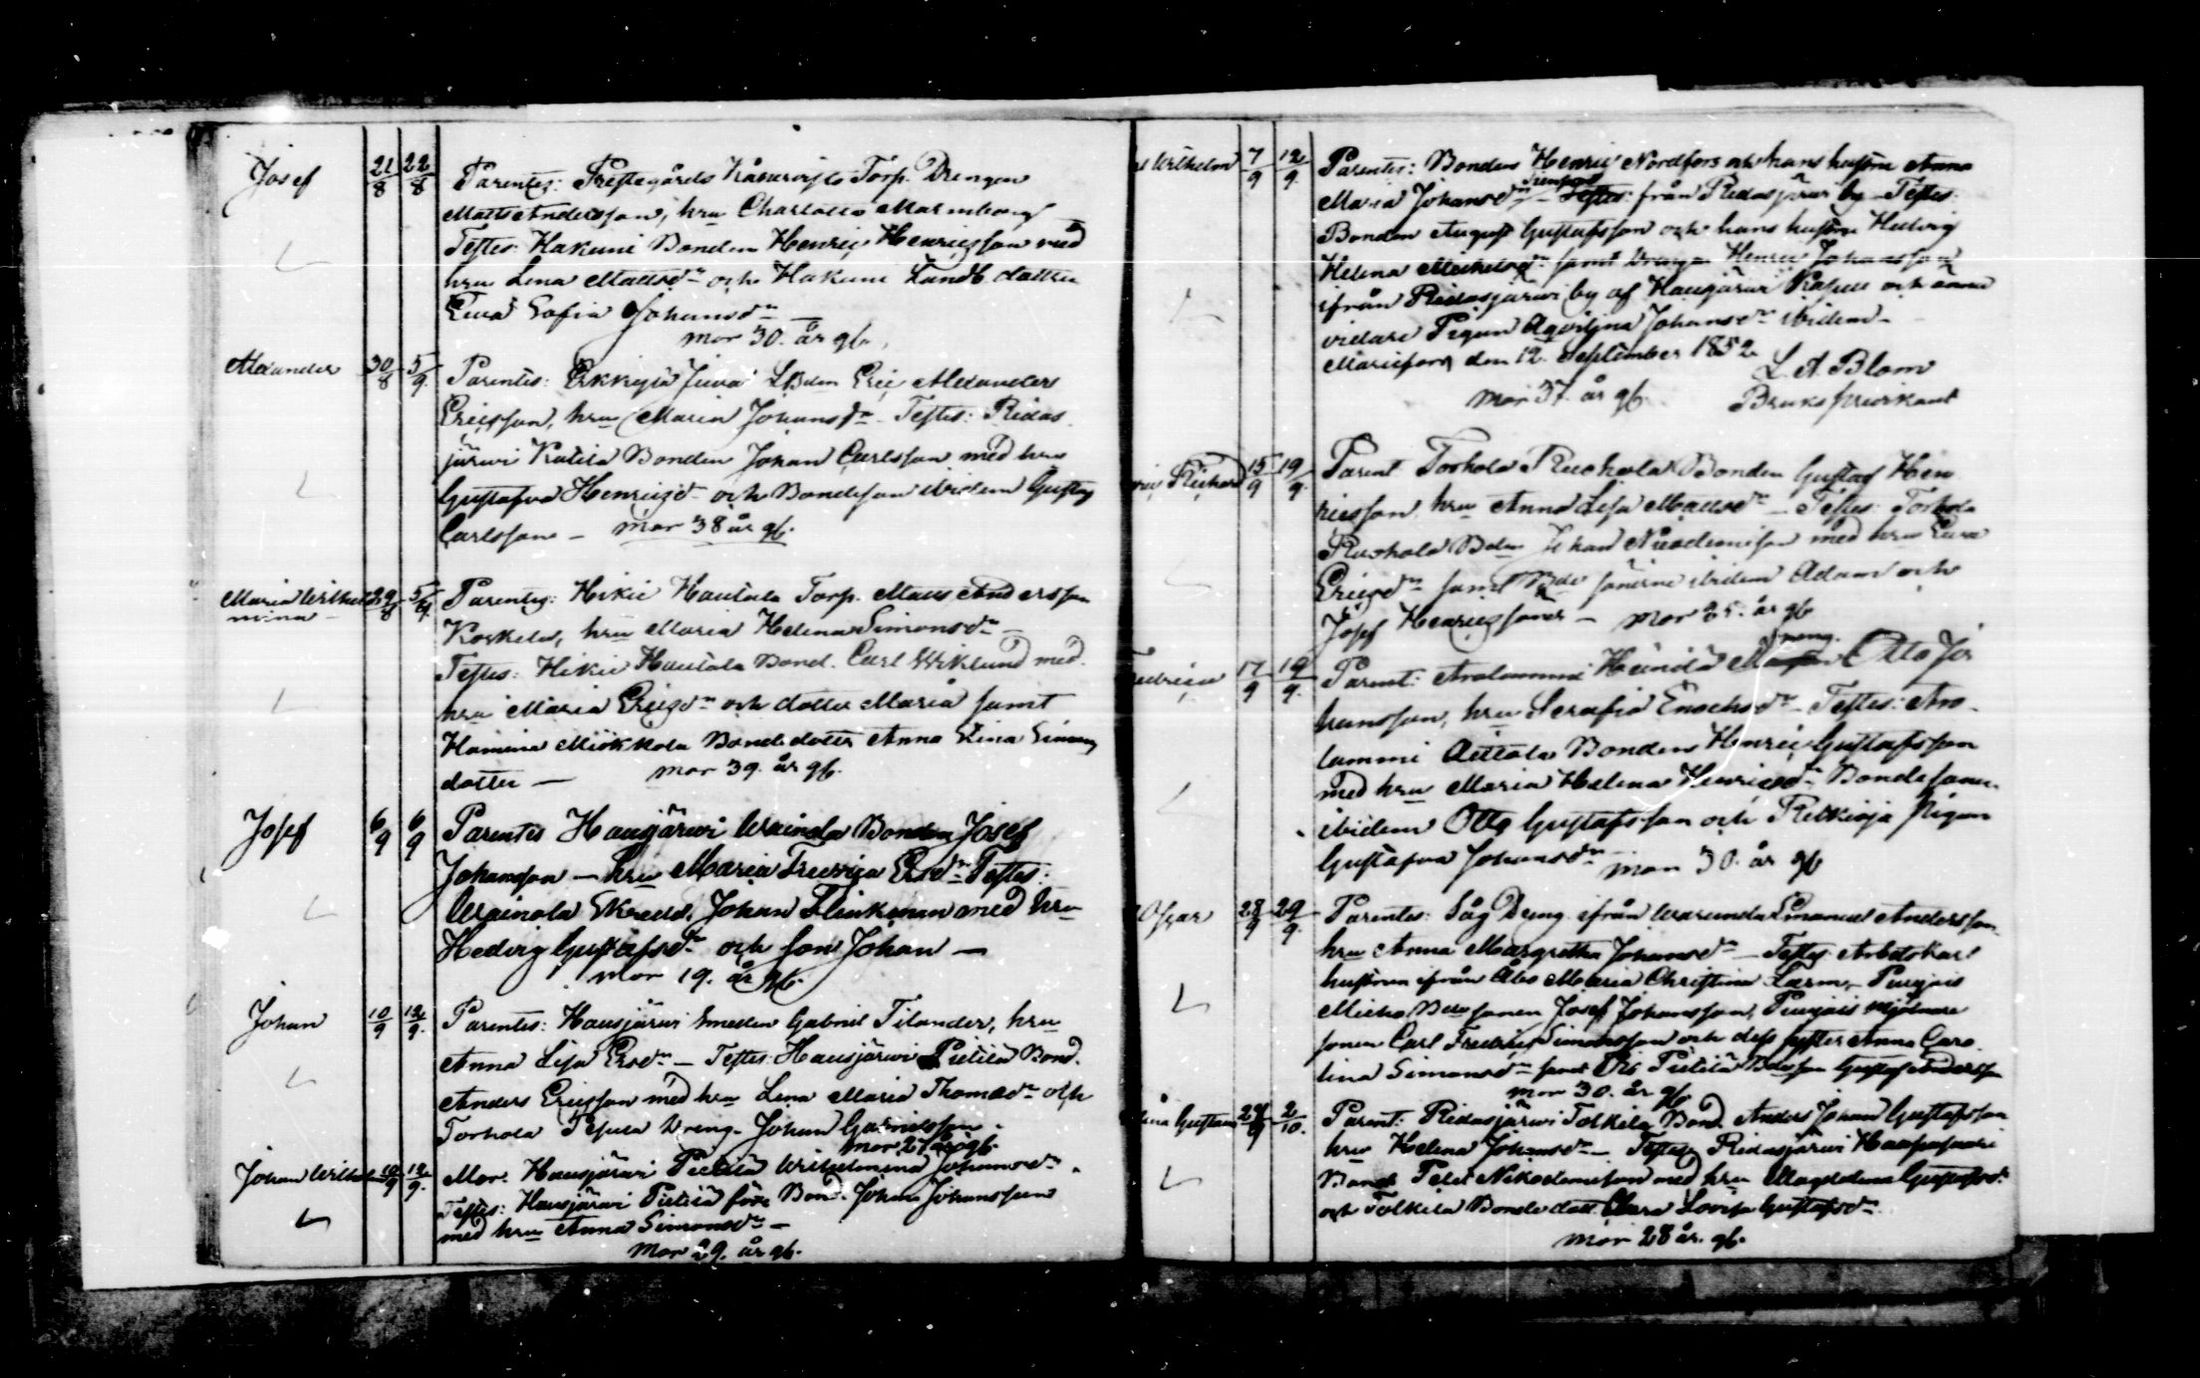 Josef 21/8 22/8 Parentes: Torp. Drengen
Matts Andersson, hru Charlotta Malmberg
Testes: Hakuni Bonden Henric Henricsson med
hru Lena Mattsdr och Hakuni Landb. dotter
Eva Sofia Johansdr
mor 30. år gl.
Alexander 30/8 5/9 Parentes: Erkkylä Juva Eric Alexander
Ericsson, hru Maria Johansdr Testes: Ridas
järwi Katila Bonden Johan Carlsson med hru
Gustafva Henricsdr och Bondeson ibidem Gustaf
Carlsson — mor 38 år gl.
Maria Wilhel 29/8 5/9 Parentes: Hikiä Hautala Torp. Matts Andersson
mina Koskela, hru Maria Helena Simonsdr —
Testes: Hikiä Hautala Bond. Carl Wiklund med
hru Maria Ericsdr och dotter Maria samt
Hamina Bondedotter Anna Stina Simons
dotter — mor 39. år gl.
Josef 6/9 6/9 Parentes Hausjärwi Wainola Bonden Josef
Johansson — hru Maria Fredrica Ersdr Testes:
Wainola Skredd. Johan Flinkman med hru
Hedvig Gustafsdr och son Johan —
mor 19. år gl.
Johan 10/9 12/9 Parentes: Hausjärwi Smeden Gabriel Tilander, hru
Anna Lisa Ersdr — Testes: Hausjärwi Pietilä Bond.
Anders Ericsson med hru Lena Maria Thomasdr och
Torhola Dreng. Johan Gabrielsson.
mor 27 år gl.
Johan Wilhelm 10/9 12/9 Mor. Hausjärwi Pietilä Wilhelmina Johansdr.
Testes: Hausjärwi Pietilä förre Bond. Johan Johansson
med hru Anna Simonsdr —
mor 29. år gl.
Wilhelm 7/9 12/9 Parentes: Bonden Henric Nordfors och hans hustru Anna
Maria Johansdr från Ridasjärwi by — Testes:
Bonden August Gustafsson och hans hustru Hedvig
Helena Michelsdr samt Drengen Henric Johansson
ifrån Ridasjärwi by af Hausjärwi Kapell och ännu
vidare Pigan Johansdr ibidem —
Mariefors den 12. September 1852
L. A. Blom
mor 37. år gl. Brukspredikant
Richard 15/9 19/9 Parent. Torhola Ruskola Bonden Gustaf Hen
ricsson, hru Anna Lisa Mattsdr — Testes: Torhola
Ruskola Bden Johan Nicodemisson med hru Eva
Ericsdr samt Bde sönerne ibidem Adam och
Josef Henricssoner — mor 25. år gl.
Fredrica 17/9 19/9 Parent: Arolammi Heinilä Dreng. Otto Jo
hansson, hru Serafia Enochsdr — Testes: Aro
lammi Attala Bonden Henric Gustafsson
med hru Maria Helena Henricsdr Bondesonen
ibidem Otto Gustafsson och Pigan
Gustafva Johansdr mor 30. år gl.
Oscar 28/9 29/9 Parentes: Såg Dreng ifrån Warunda Emanuel Andersson
hru Anna Margretha Johansdr — Testes: Arbetskarl
hustrun ifrån Åbo Maria Christina Puujois
Bdesonen Josef Johansson, Puujois Mjölnare
sonen Carl Fredric Simonsson och dess syster Anna Caro
lina Simonsdr samt Pietilä Bdeson Gustaf Andersson
mor 30. år gl.
Gustava 28/9 2/10. Parent: Ridasjärwi Tolkila Bond. Anders Johan Gustafsson
hru Helena Johansdr — Testes Ridasjärwi Haapasaari
Bond. Peter Nikodemisson med hru Magdalena Gustafsdr
och Tolkila Bonde dott. Clara Lovisa Gustafsdr
mor 28 år. gl.